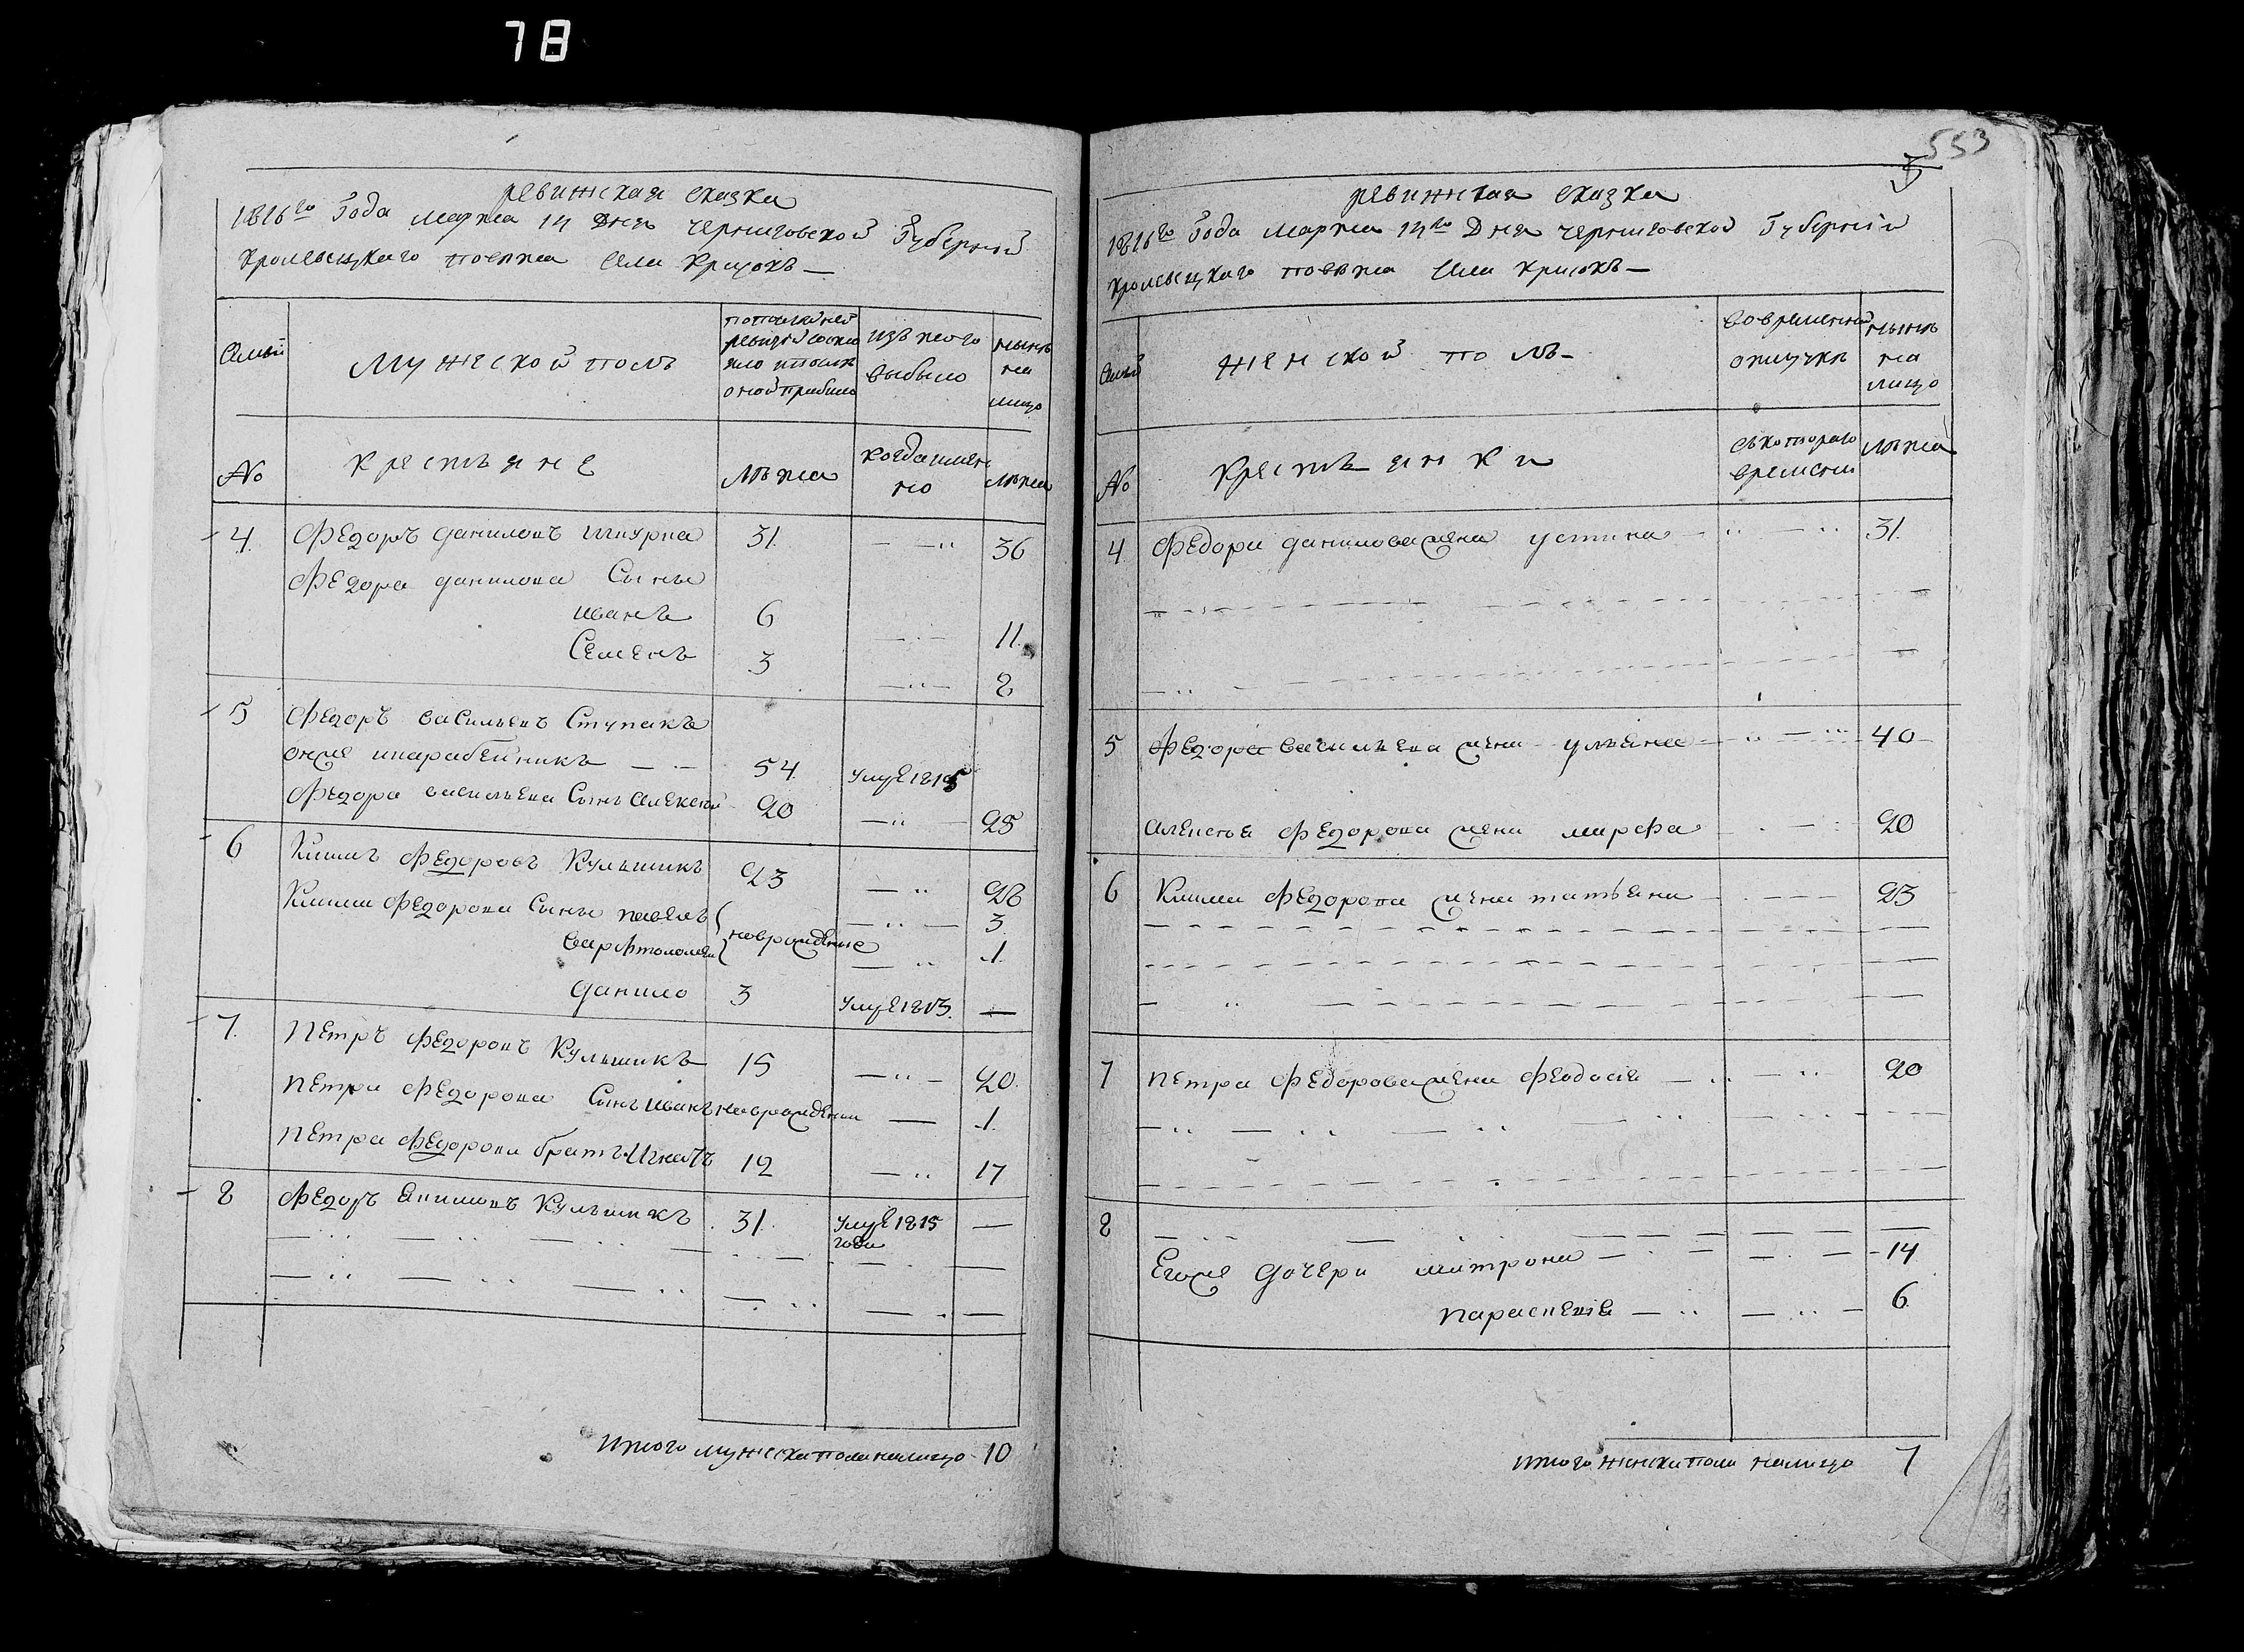 78
ревижская сказка
1816го Года Марта 14 Дня черниговской Губернии
кролевецкаго повета села
Семьи
Мужеской полъ
по последней
ревизии состо
яло и после
оной прибыло
изъ того
выбыло
ныне
на
лицо
No
крестьяне
лѣта
когда имен
но
лѣта
4. Федоръ даниловъ 31. 36
Федора данилова Сыны
иванъ 6 11.
Семенъ 3 8
5 Федоръ васильевъ Ступакъ
онже 54. умре 1815
Федора васильева Сынъ алексей 20 25
6 Климъ Федоровъ Кулешикъ 23 28
Клима Федорова Сыны павелъ новрожденые 3.
варфтоломей 1.
данило 3 умре 1813. —
7. Петръ Федоровъ Кулешикъ 15 20.
Петра Федорова Сынъ иванъ новрожденый 1.
Петра Федорова братъ Игнатъ 12 17
8 Федоръ Кулешикъ 31. умре 1815 —
года
Итого мужеска пола налицо 10
553
5
ревижская сказка
1816го Года Марта 14го Дня черниговской Губернии
кролевецкаго повета села
Семьи
женской полъ
во временной
отлучке
ныне
на
лицо
No
Крестьянки
съ котораго
времени
лѣта
4 Федора данилова жена устина 31.
5 Федора васильева жена ульяна 40
алексея Федорова жена марфа 20
6 Клима Федорова жена татьяна 23
7 Петра Федорова жена Феодосия 20
8
Егоже дочери матрона 14
параскевия 6.
итого женска пола налицо 7